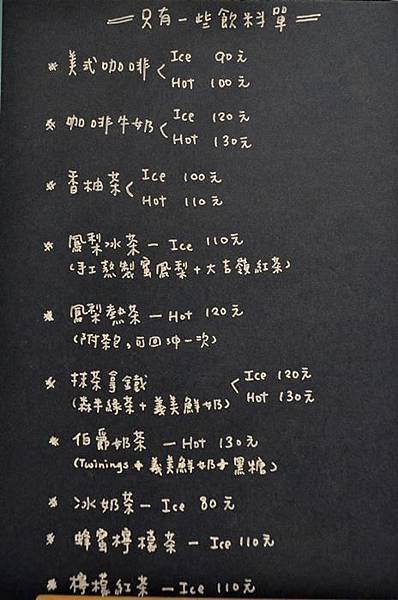 只有一些飲料單
* 美式咖啡 Ice 90元
Hot 100元
* 咖啡牛奶 Ice 120元
Hot 130元
* 香柚茶 Ice 100元
Hot 110元
* 鳳梨冰茶 — Ice 110元
(手工熬製蜜鳳梨+大吉嶺紅茶)
* 鳳梨熱茶 — Hot 120元
(附茶包,可回沖一次)
* 抹茶拿鐵 Ice 120元
(森半綠茶+義美鮮奶) Hot 130元
* 伯爵奶茶 — Hot 130元
(Twinings+義美鮮奶+黑糖)
* 冰奶茶 — Ice 80元
* 蜂蜜檸檬茶 — Ice 110元
* 檸檬紅茶 — Ice 110元